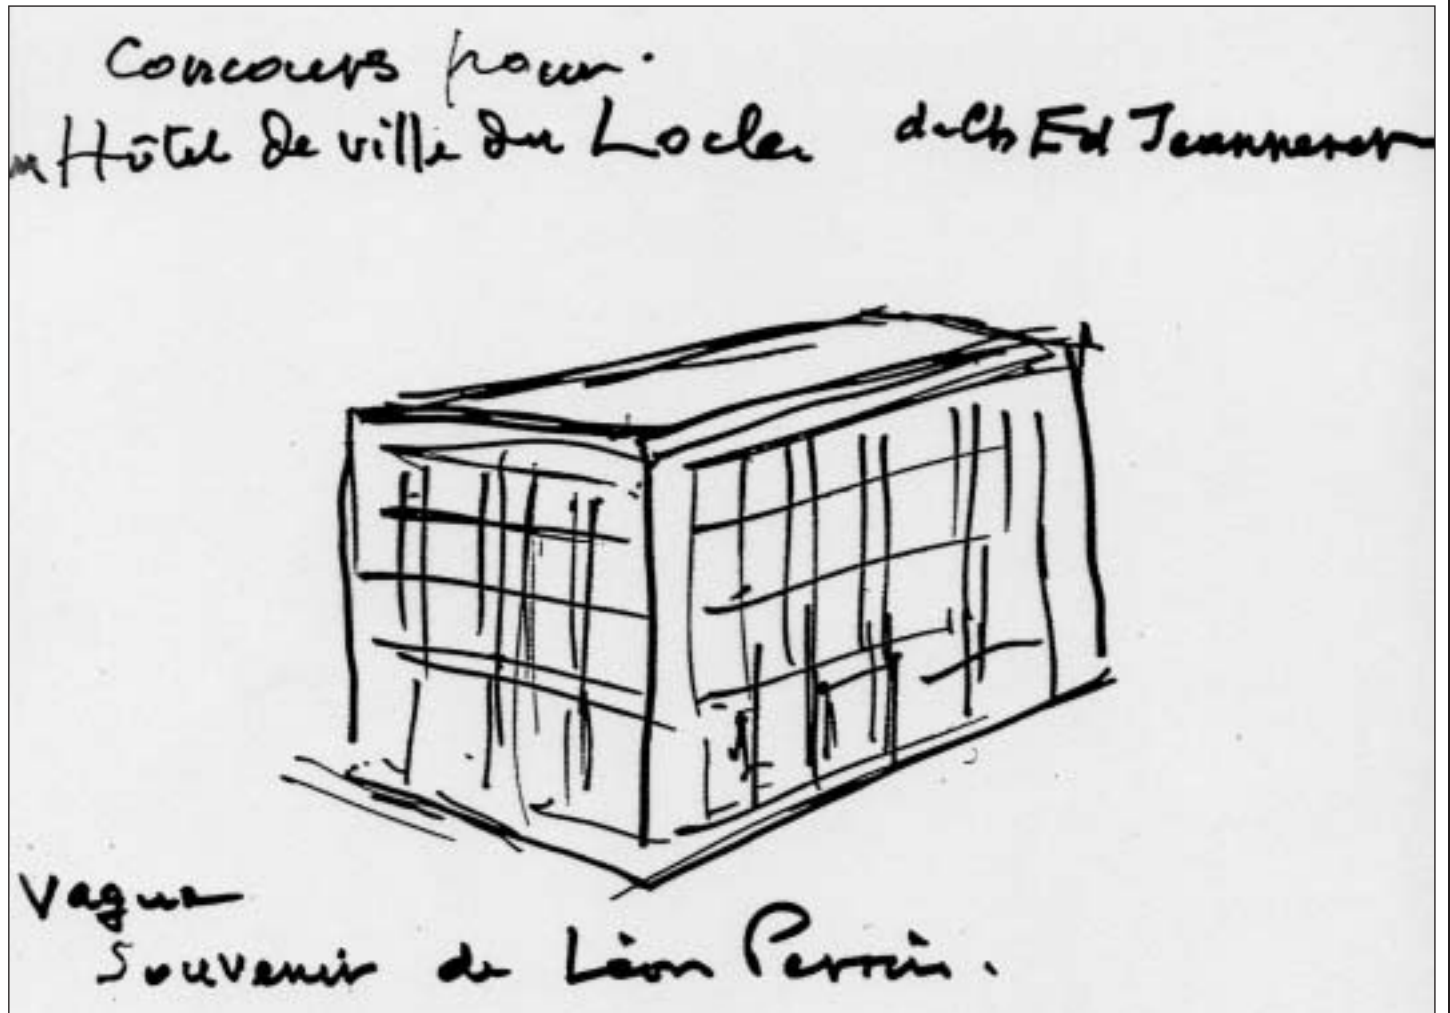 Concours pour.
Hôtel de ville du Locle de Ch Ed Jeanneret
Vague
Souvenir de Léon Perrin.